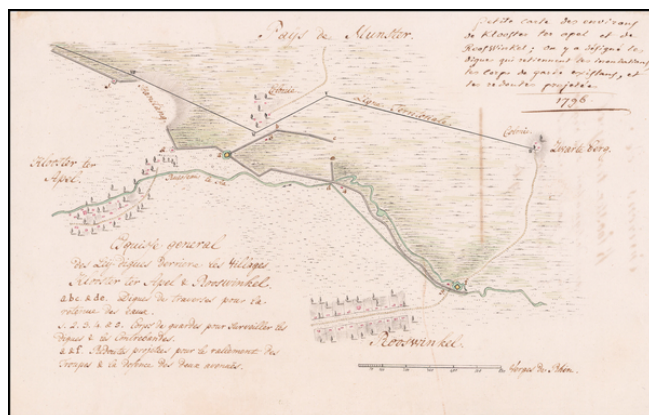 Pays de Munster.
Petite carte des environs
de Klooster ter apel et de
Rooswinkel; on y a désigné les
digues qui retiennent les inondations
les corps de garde existans, et
les redoutes projetée
1796
Ligne
Zwarte Berg
Klooster ter
Apel.
Esquisse general
des Ley-digues derriere les Villages
Klooster ter Apel & Rooswinkel.
a b c & d e. Digues de traverses pour la
retenue des eaux.
1. 2. 3. 4. & 5. Corps de gardes pour surveiller les
digues & les Contrebandes.
a & f. Redoutes projettées pour le ralliement des
Troupes & la defence des deux
Rooswinkel
Verges du Rhin.